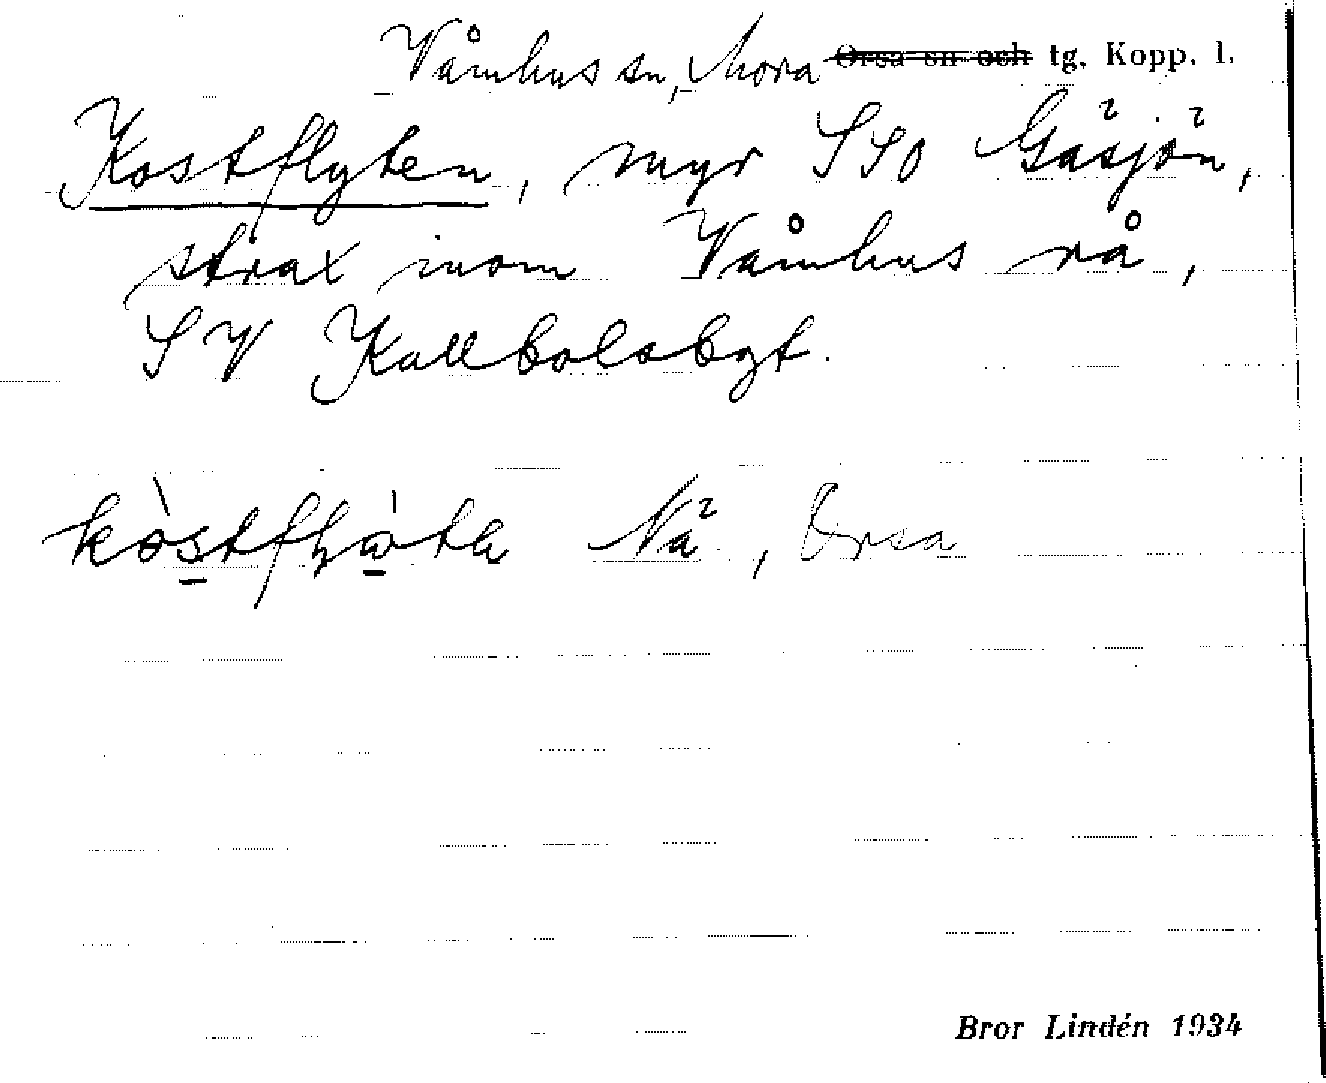 Våmhus sn, Mora ~~Orsa sn och~~ tg, Kopp. l.
Kostflyten, myr SSO Gäsjön,
strax inom Våmhus rå,
SV Kallbolsbgt.
Nä, Orsa
Bror Lindén 1934